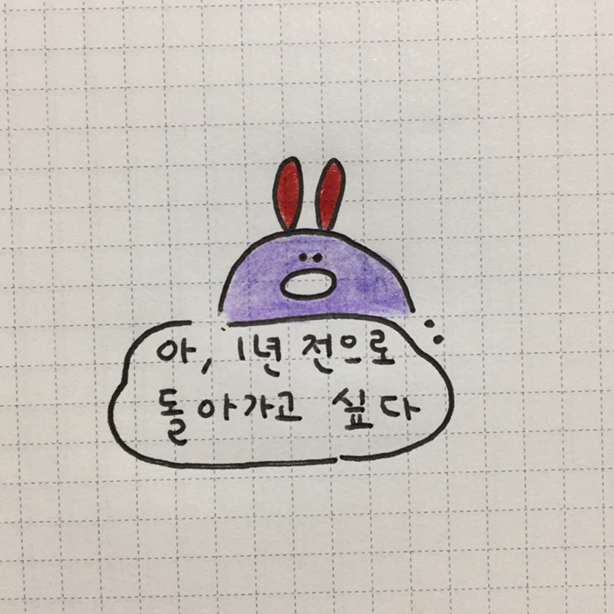 아, 1년 전으로
돌아가고 싶다